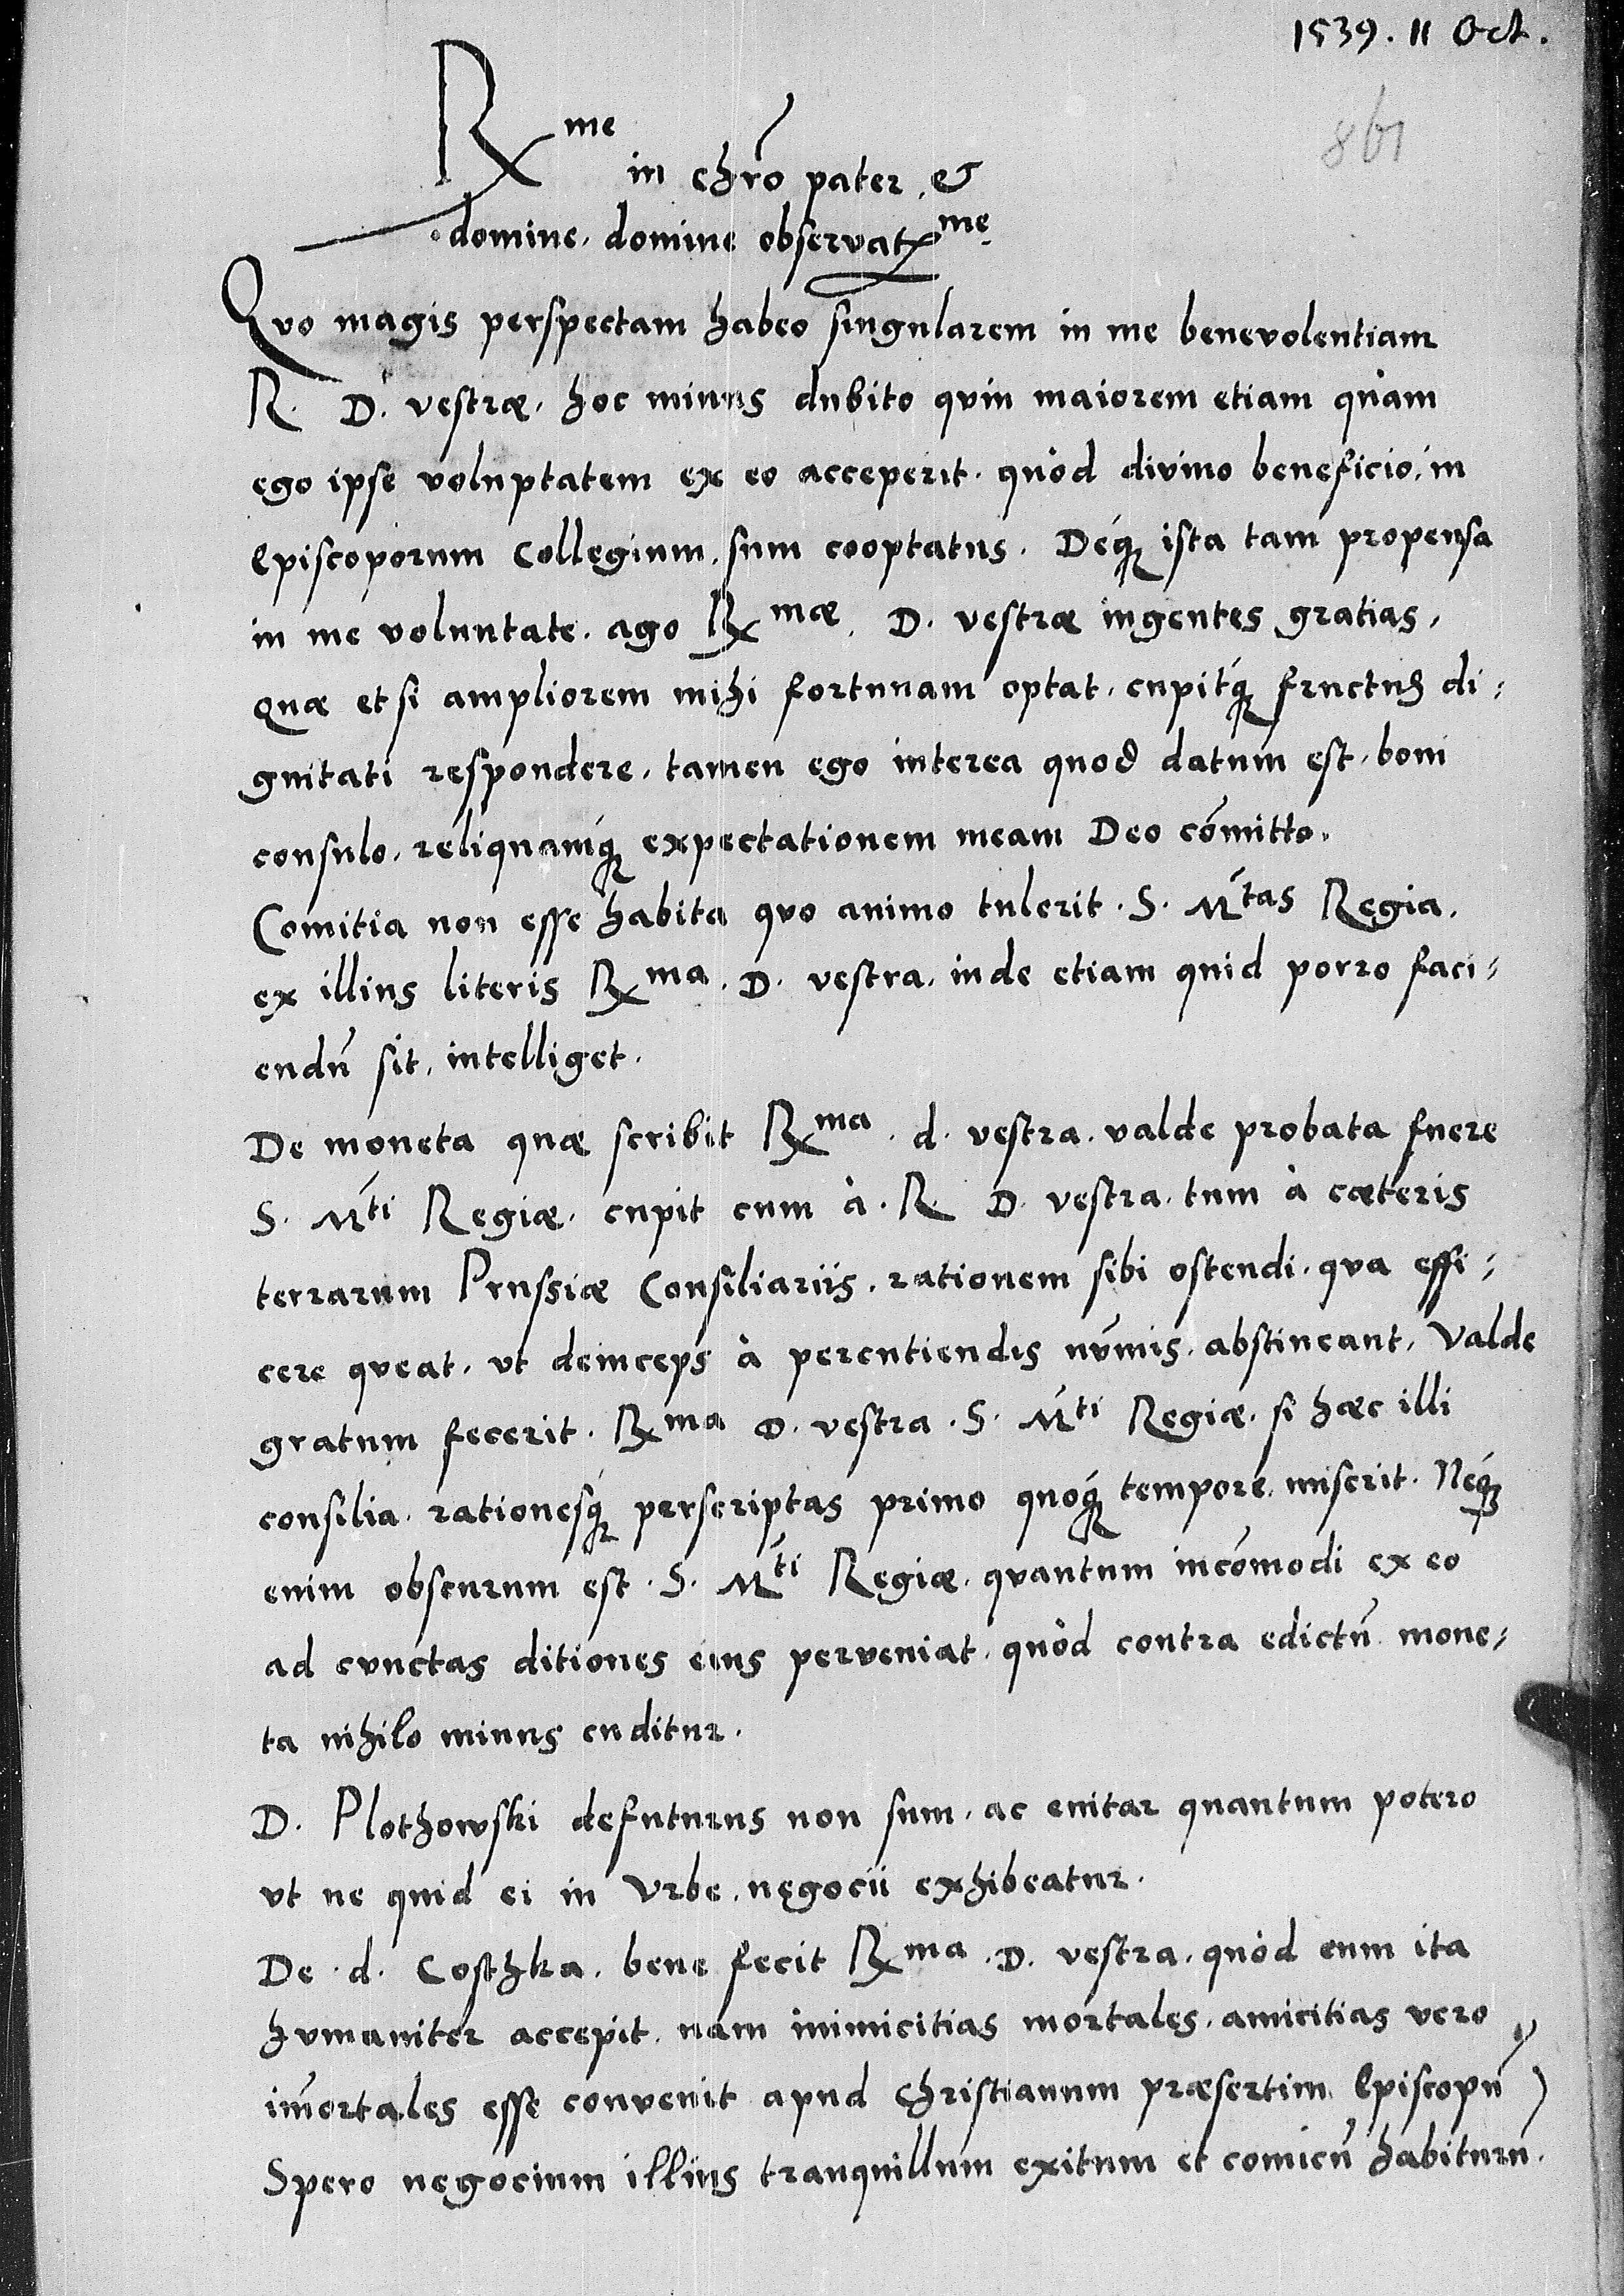 1539. 11 Oct.
861
R^me in chr̄o pater, &
domine, domine observat^me
Quo magis perspectam habeo singularem in me benevolentiam
R. D. vestræ, hoc minus dubito quin maiorem etiam quàm
ego ipse voluptatem ex eo acceperit, quòd divino beneficio, in
Episcoporum Collegium, sum cooptatus. Déq; ista tam propensa
in me voluntate, ago R^mæ. D. vestræ ingentes gratias,
quæ et si ampliorem mihi fortunam optat, cupitq́; fructus di-
gnitati respondere, tamen ego interea quod datum est, boni
consulo, reliquamq́; expectationem meam Deo cōmitto.
Comitia non esse habita quo animo tulerit. S. M^tas Regia.
ex illius literis R^ma. D. vestra, inde etiam quid porro faci-
endū sit, intelliget.
De moneta quæ scribit R^ma. d. vestra, valde probata fuere
S. M^ti Regiæ, cupit cum à. R. D. vestra, tum à cæteris
terrarum Prussiæ Consiliariis, rationem sibi ostendi, qua effi-
cere queat, ut deinceps à percutiendis nūmis, abstineant. Valde
gratum fecerit. R^ma D. vestra. S. M^ti Regiæ, si hæc illi
consilia, rationesq́; perscriptas primo quoq́; tempore, miserit. Neq́;
enim obscurum est. S. M^ti Regiæ, quantum incōmodi ex eo
ad cunctas ditiones eius perveniat, quòd contra edictū mone-
ta nihilo minus cuditur.
D. Plothowski defuturus non sum, ac enitar quantum potero
ut ne quid ei in Urbe, negocii exhibeatur.
De. d. Costhka, bene fecit R^ma. D. vestra, quòd eum ita
humaniter accepit, nam inimicitias mortales, amicitias vero
im̄ortales esse convenit apud Christianum præsertim Episcopū
Spero negocium illius tranquillum exitum et comicū habiturū.